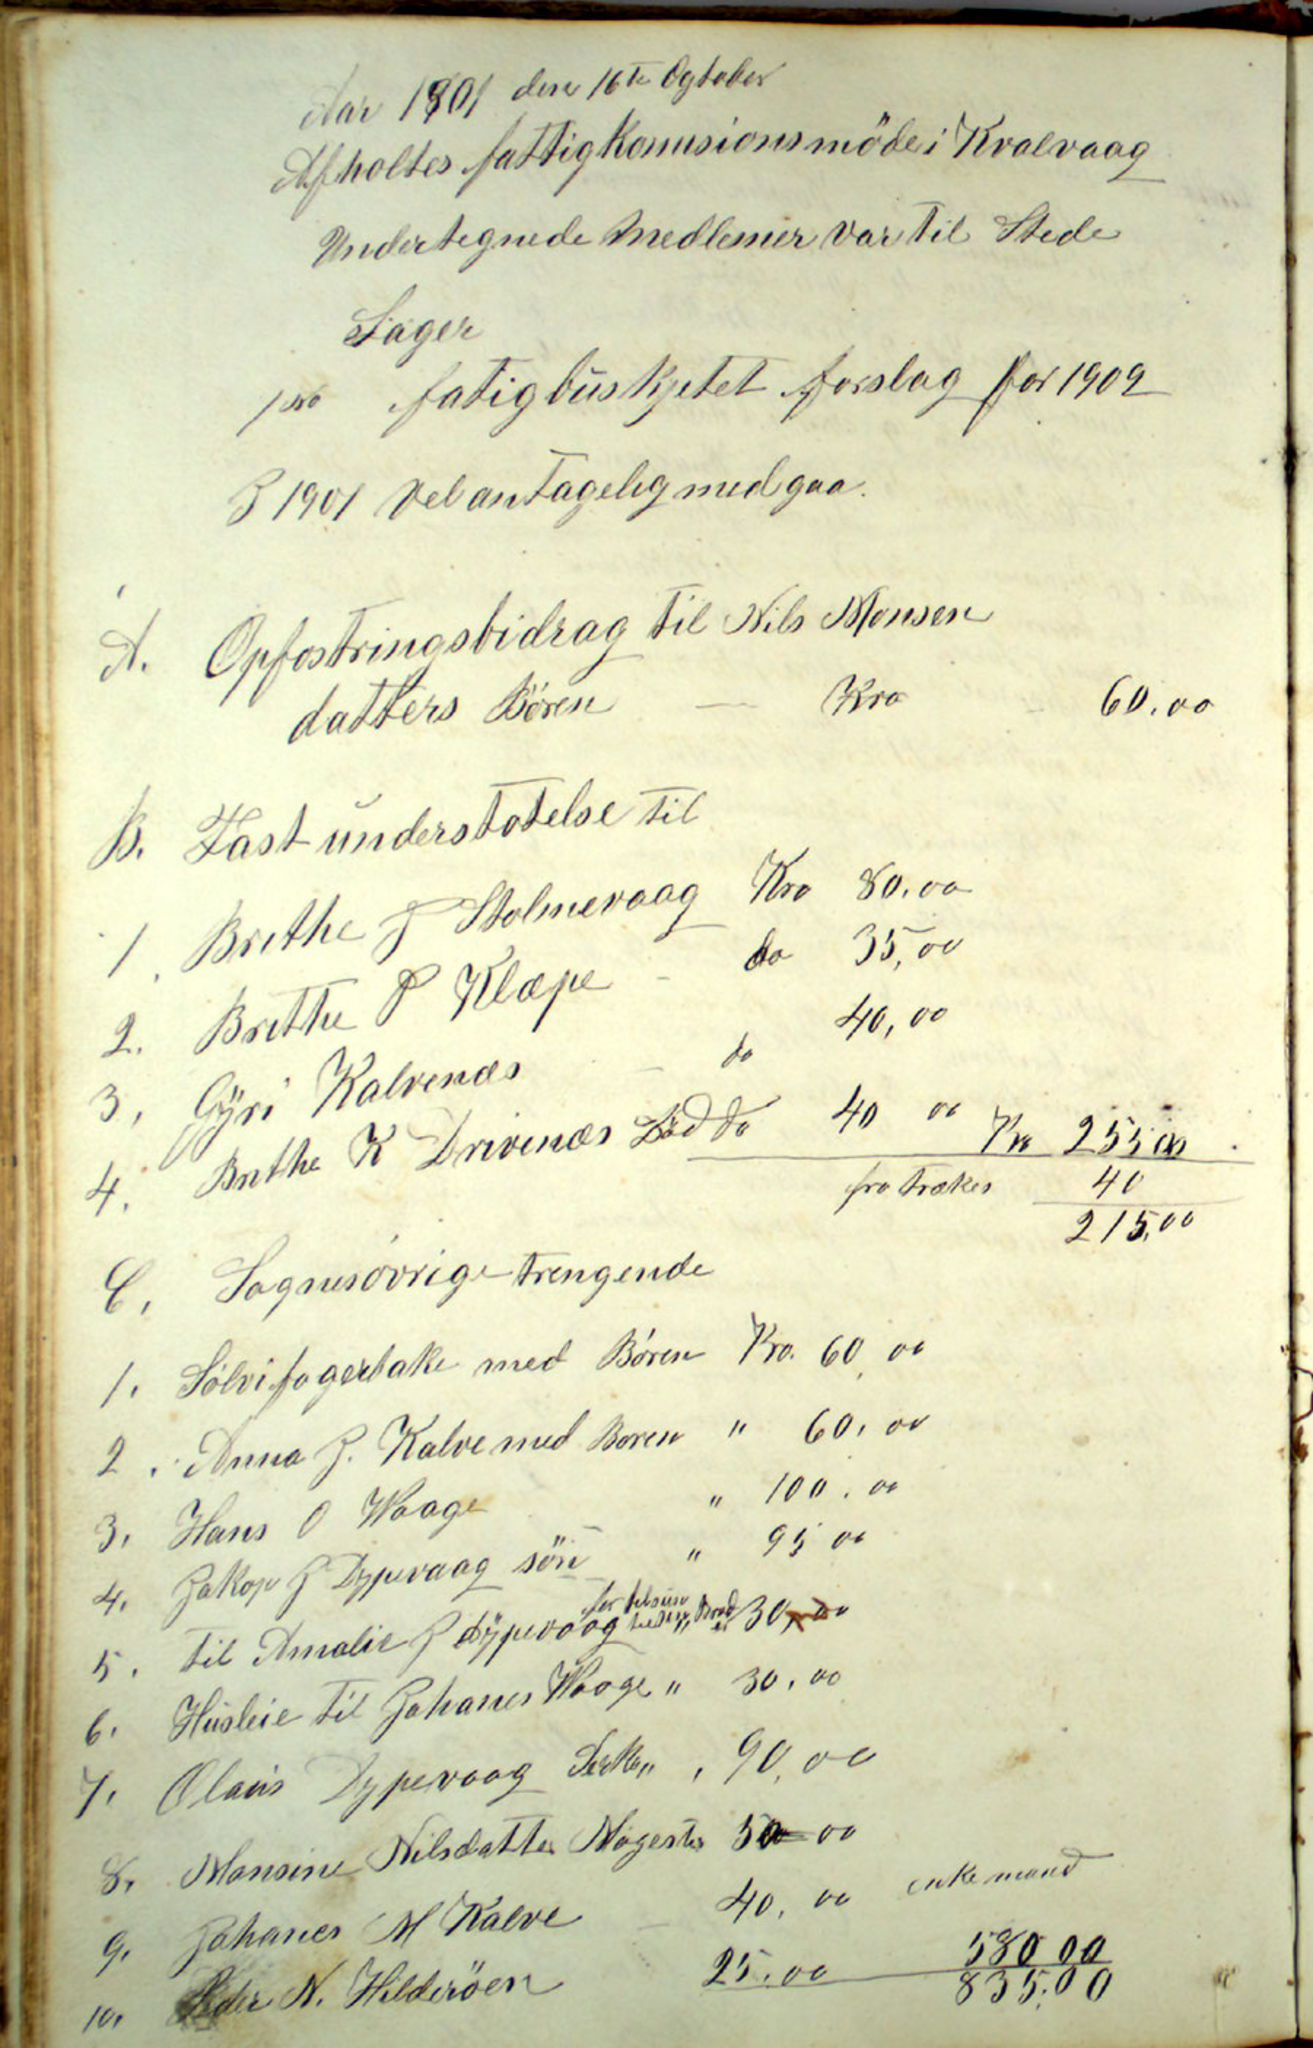 Aar 1901 den 16te Ogtober
Afholtes fattigkomisionsmöde i Kvalvaag
Undertegnede Medlemer var til Stede
Sager
1ste fatigbuskjetet forslag for 1902
I 1901 vel antagelig medgaa.
A. Opfostringsbidrag til Nils Monsen
datters Bören — Kro 60.00
B. Fast understotelse til
1. Brithe J Stolmevaag Kro 80.00
2. Brithe P Klæpe - do 35,00
3. Gyri Kalvenæs - do 40,00
4. Brithe K Drivenæs Död do 40 00 Kro 255 00
fra trækes 40
215,00
C. Sognesövrige trengende
1. Sølvi fagerbake med Bören Kro. 60,00
2. Anna J. Kalve med Boren " 60,00
3. Hans O Waage " 100.00
4. Jakop J Dypevaag sön " 95 00
5. til Amalie J Dypevaag for " Bröd 30,00
6. Husleie til Johanes Waage " 30.00
7. Olaüs Dypevaag " 90,00
8. Monsine Nilsdatter Møgster 50 00
9. Johanes M Kalve - 40,00 enkemand
10. Peder N. Hilderöen 25.00 580 00
835.00